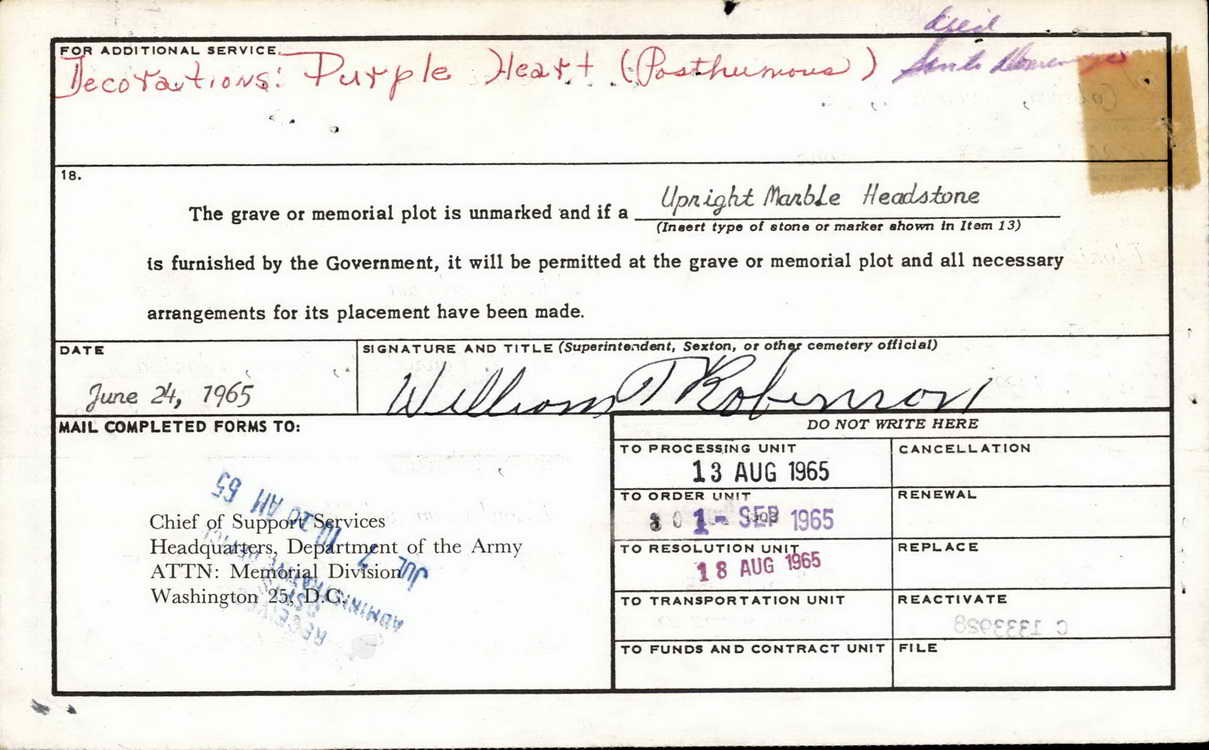 died
FOR ADDITIONAL SERVICE.
Decorations: Purple Heart (Posthumous) Santo Domingo
18.
The grave or memorial plot is unmarked and if a Upright Marble Headstone
(Insert type of stone or marker shown in Item 13)
is furnished by the Government, it will be permitted at the grave or memorial plot and all necessary
arrangements for its placement have been made.
DATE
June 24, 1965
SIGNATURE AND TITLE (Superintendent, Sexton, or other cemetery official)
William T Robinson
MAIL COMPLETED FORMS TO:
Chief of Support Services
Headquarters, Department of the Army
ATTN: Memorial Division
Washington 25, D.C.
JUL 7 10 20 AM 65
DO NOT WRITE HERE
TO PROCESSING UNIT
13 AUG 1965
CANCELLATION
TO ORDER UNIT
1 - SEP 1965
RENEWAL
TO RESOLUTION UNIT
18 AUG 1965
REPLACE
TO TRANSPORTATION UNIT
REACTIVATE
C 1333928
TO FUNDS AND CONTRACT UNIT
FILE